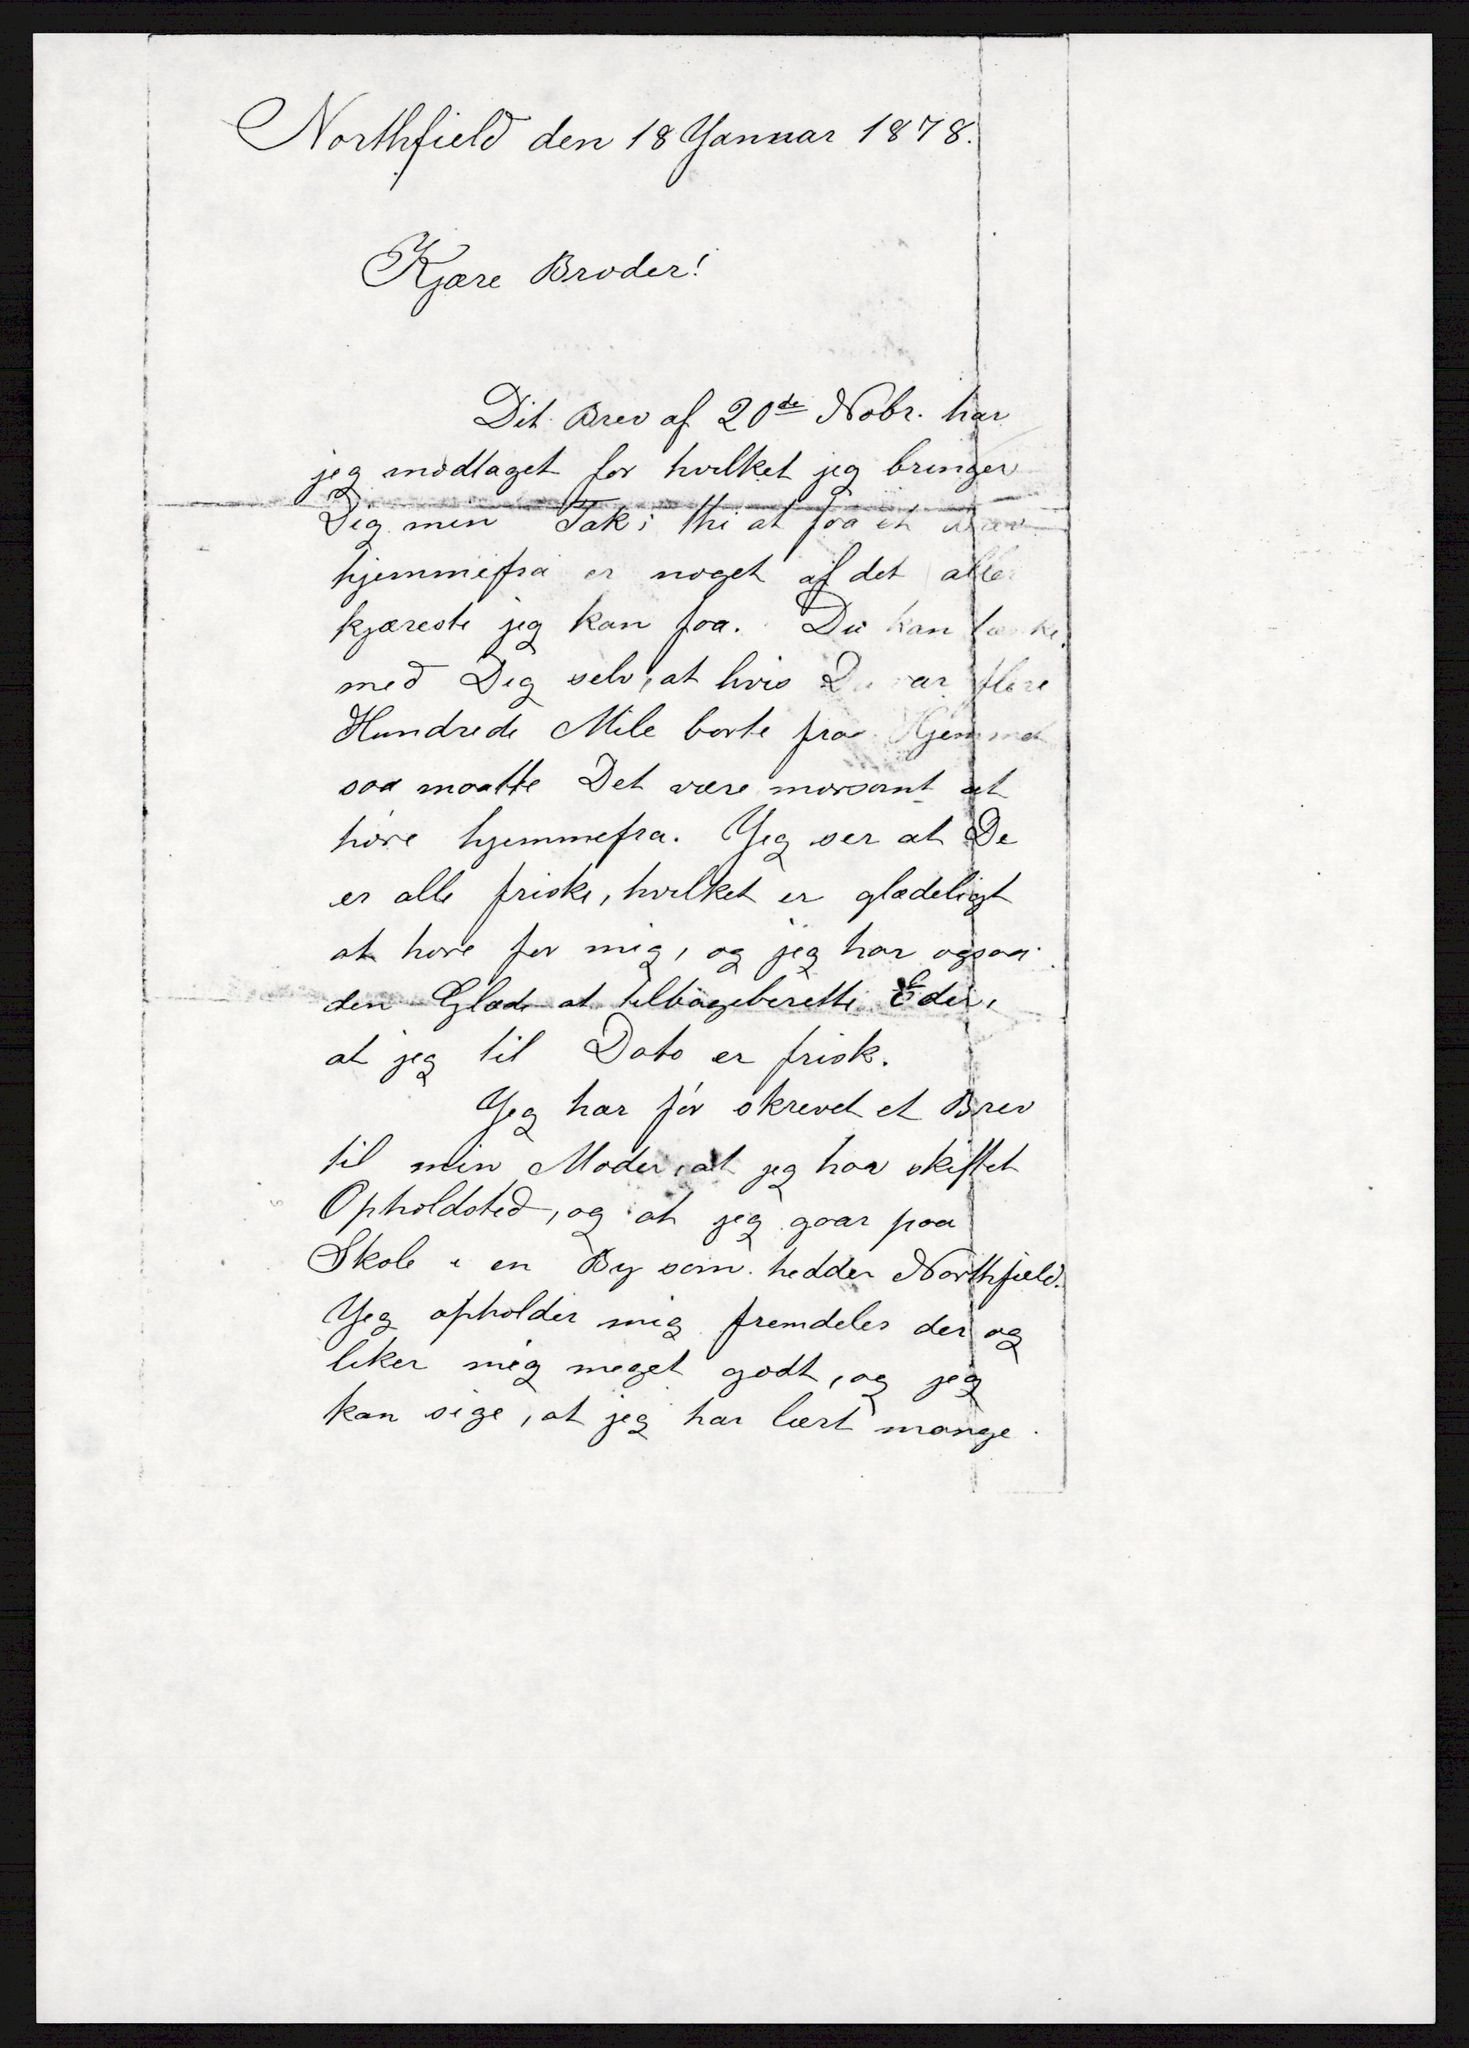 Northfield den 18 Januar 1878.
Kjære Broder!
Dit Brev af 20de Nobr. har
jeg modtaget for hvilket jeg bringer
Dig min Tak; thi at faa et Brev
hjemmefra er noget af det aller
kjæreste jeg kan faa. Du kan tænke
med Dig selv, at hvis Du var flere
Hundrede Mile borte fra Hjemmet
saa maatte Det være morsomt at
høre hjemmefra. Jeg ser at De
er alle friske, hvilket er glædeligt
at høre for mig, og jeg har ogsaa
den Glæde at tilbageberette Eder,
at jeg til Dato er frisk.
Jeg har før skrevet et Brev
til min Moder, at jeg har skiftet
Opholdsted, og at jeg gaar paa
Skole i en By som hedder Northfield.
Jeg opholder mig fremdeles der og
liker mig meget godt, og jeg
kan sige, at jeg har lært mange